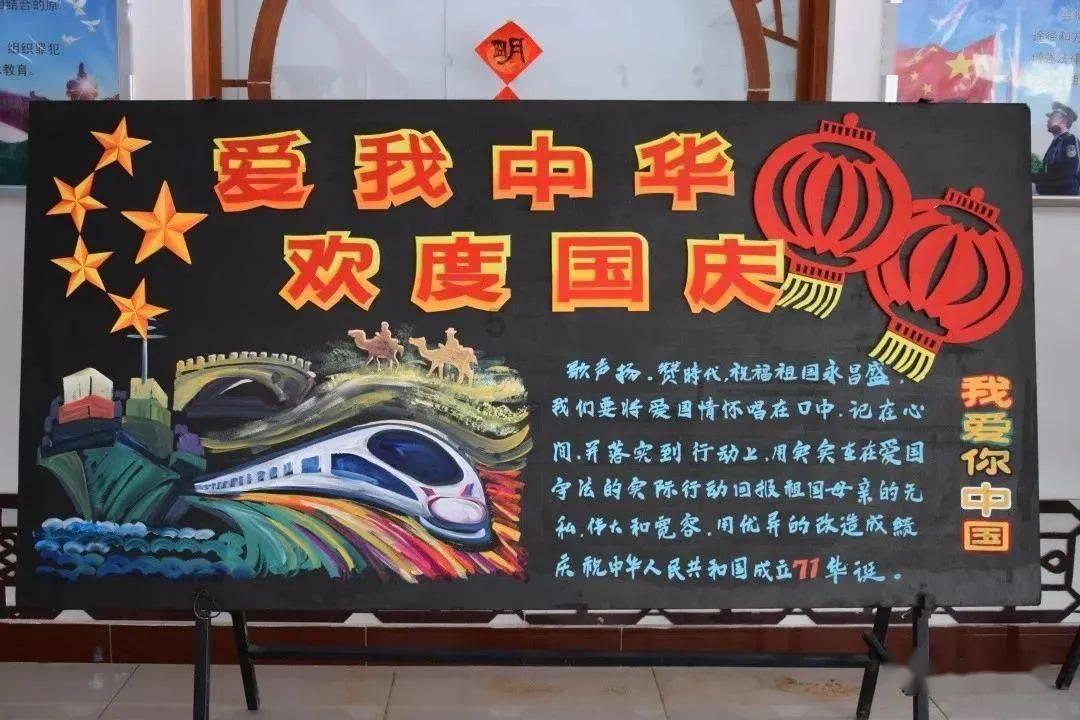 结合的原
组织罪犯
教育。
明
爱我中华
欢度国庆
歌声扬，赞時代，祝福祖国永昌盛，
我们要将爱国情怀唱在口中，记在心
间，并落实到行动上，用实实在在爱国
守法的实际行动回报祖国母亲的无
私，伟大和宽容，用优异的改造成績
庆祝中华人民共和国成立71华诞。
我爱你中国